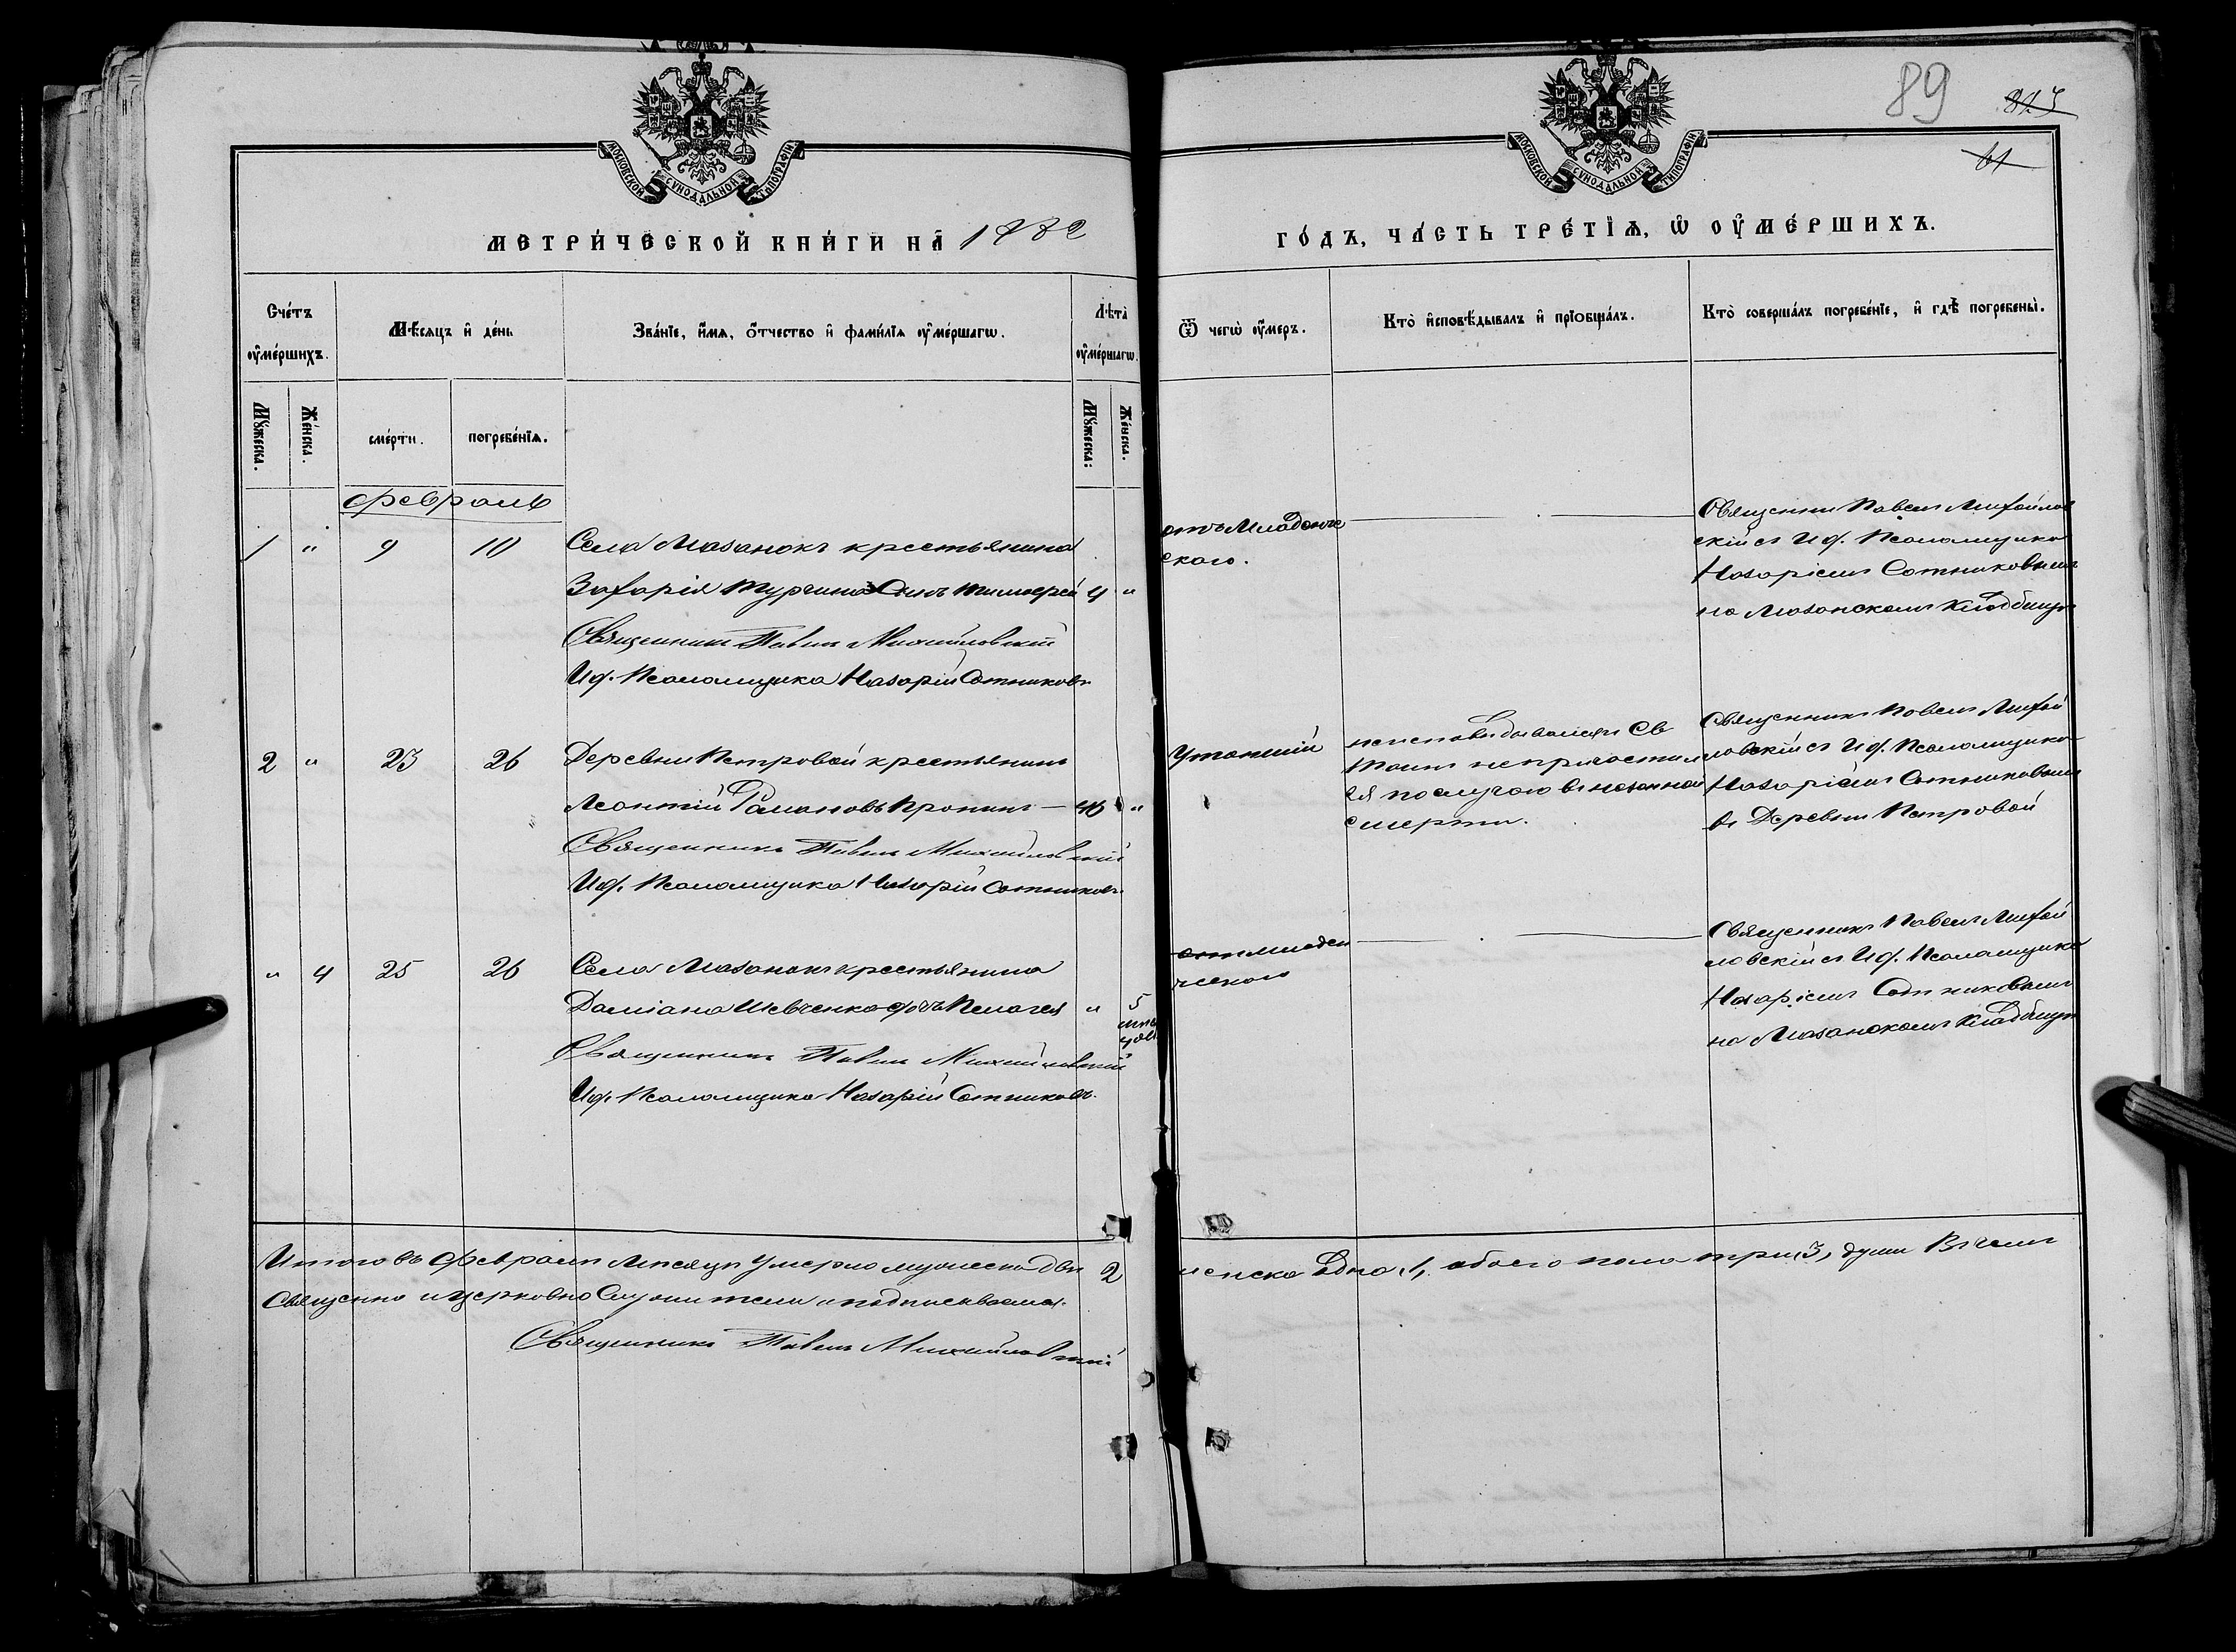 89
МОСКОВСКОЙ СУНОДАЛЬНОЙ ТИПОГРАФІИ
МОСКОВСКОЙ СУНОДАЛЬНОЙ ТИПОГРАФІИ
61
МЕТРИ́ЧЕСКОЙ КНИ́ГИ НА̀ 1882
ГО́ДЪ, ЧА́СТЬ ТРЕ́ТІѦ, Ѡ҆ ОУ҆МЕ́РШИХЪ.
Сче́тъ
оу҆ме́ршихъ.
Мꙋ́жеска.
Же́нска.
Мѣ́сяцъ и҆ де́нь
сме́рти.
погребе́нїѧ.
Зва́нїе, и҆́мѧ, ѻ҆́тчество и҆ фами́лїѧ оу҆ме́ршагѡ.
Лѣ́та
оу҆ме́ршагѡ.
Мꙋ́жеска:
Же́нска.
Ѿ чегѡ̀ оу҆́меръ.
Кто̀ и҆сповѣ́дывалъ и҆ прїобща́лъ.
Кто̀ соверша́лъ погребе́нїе, и҆ гдѣ̀ погребены̀.
Февраль
1 " 9 10 Села Мазанокъ крестьянина
Захарія Турчина Сынъ Тимофей 4 "
Священникъ Павелъ Михайловскій
И. д. Псаломщика Назарій Сотниковъ
отъ Младенче
скаго.
Священни Павелъ Михайлов
скій съ И. д. Псаломщика
Назаріемъ Сотниковымъ
на Мазанскомъ Кладбищѣ
2 " 23 26 Деревни Петровой крестьянинъ
Леонтій Романовъ Пронинъ — 40 "
Священникъ Павелъ Михайловскій
И. д. Псаломщика Назарій Сотниковъ
Утопшій
неисповѣдывался Св
Таинъ непричастил
ся по случаю внезапной
смерти.
Священникъ Павелъ Михай
ловскій съ И. д. Псаломщика
Назаріемъ Сотниковымъ
въ Деревни Петровой
" 4 25 26 Села Мазанокъ крестьянина
Даміана Шевченко дочь Пелагея " 5
мѣся
цовъ
Священникъ Павелъ Михайловскій
И. д. Псаломщика Назарій Сотниковъ.
отъ младен
ческаго
Священникъ Павелъ Михай
ловскій съ И. д. Псаломщика
Назаріемъ Сотниковымъ
на Мазанскомъ Кладбищѣ
Итого въ Февралѣ Мѣсяцѣ Умерло мужеска два 2 женска Одна, 1, обоего пола три, 3, души Въ чемъ
Священно и церковно Служители и подписываемся.
Священникъ Павелъ Михайловскій